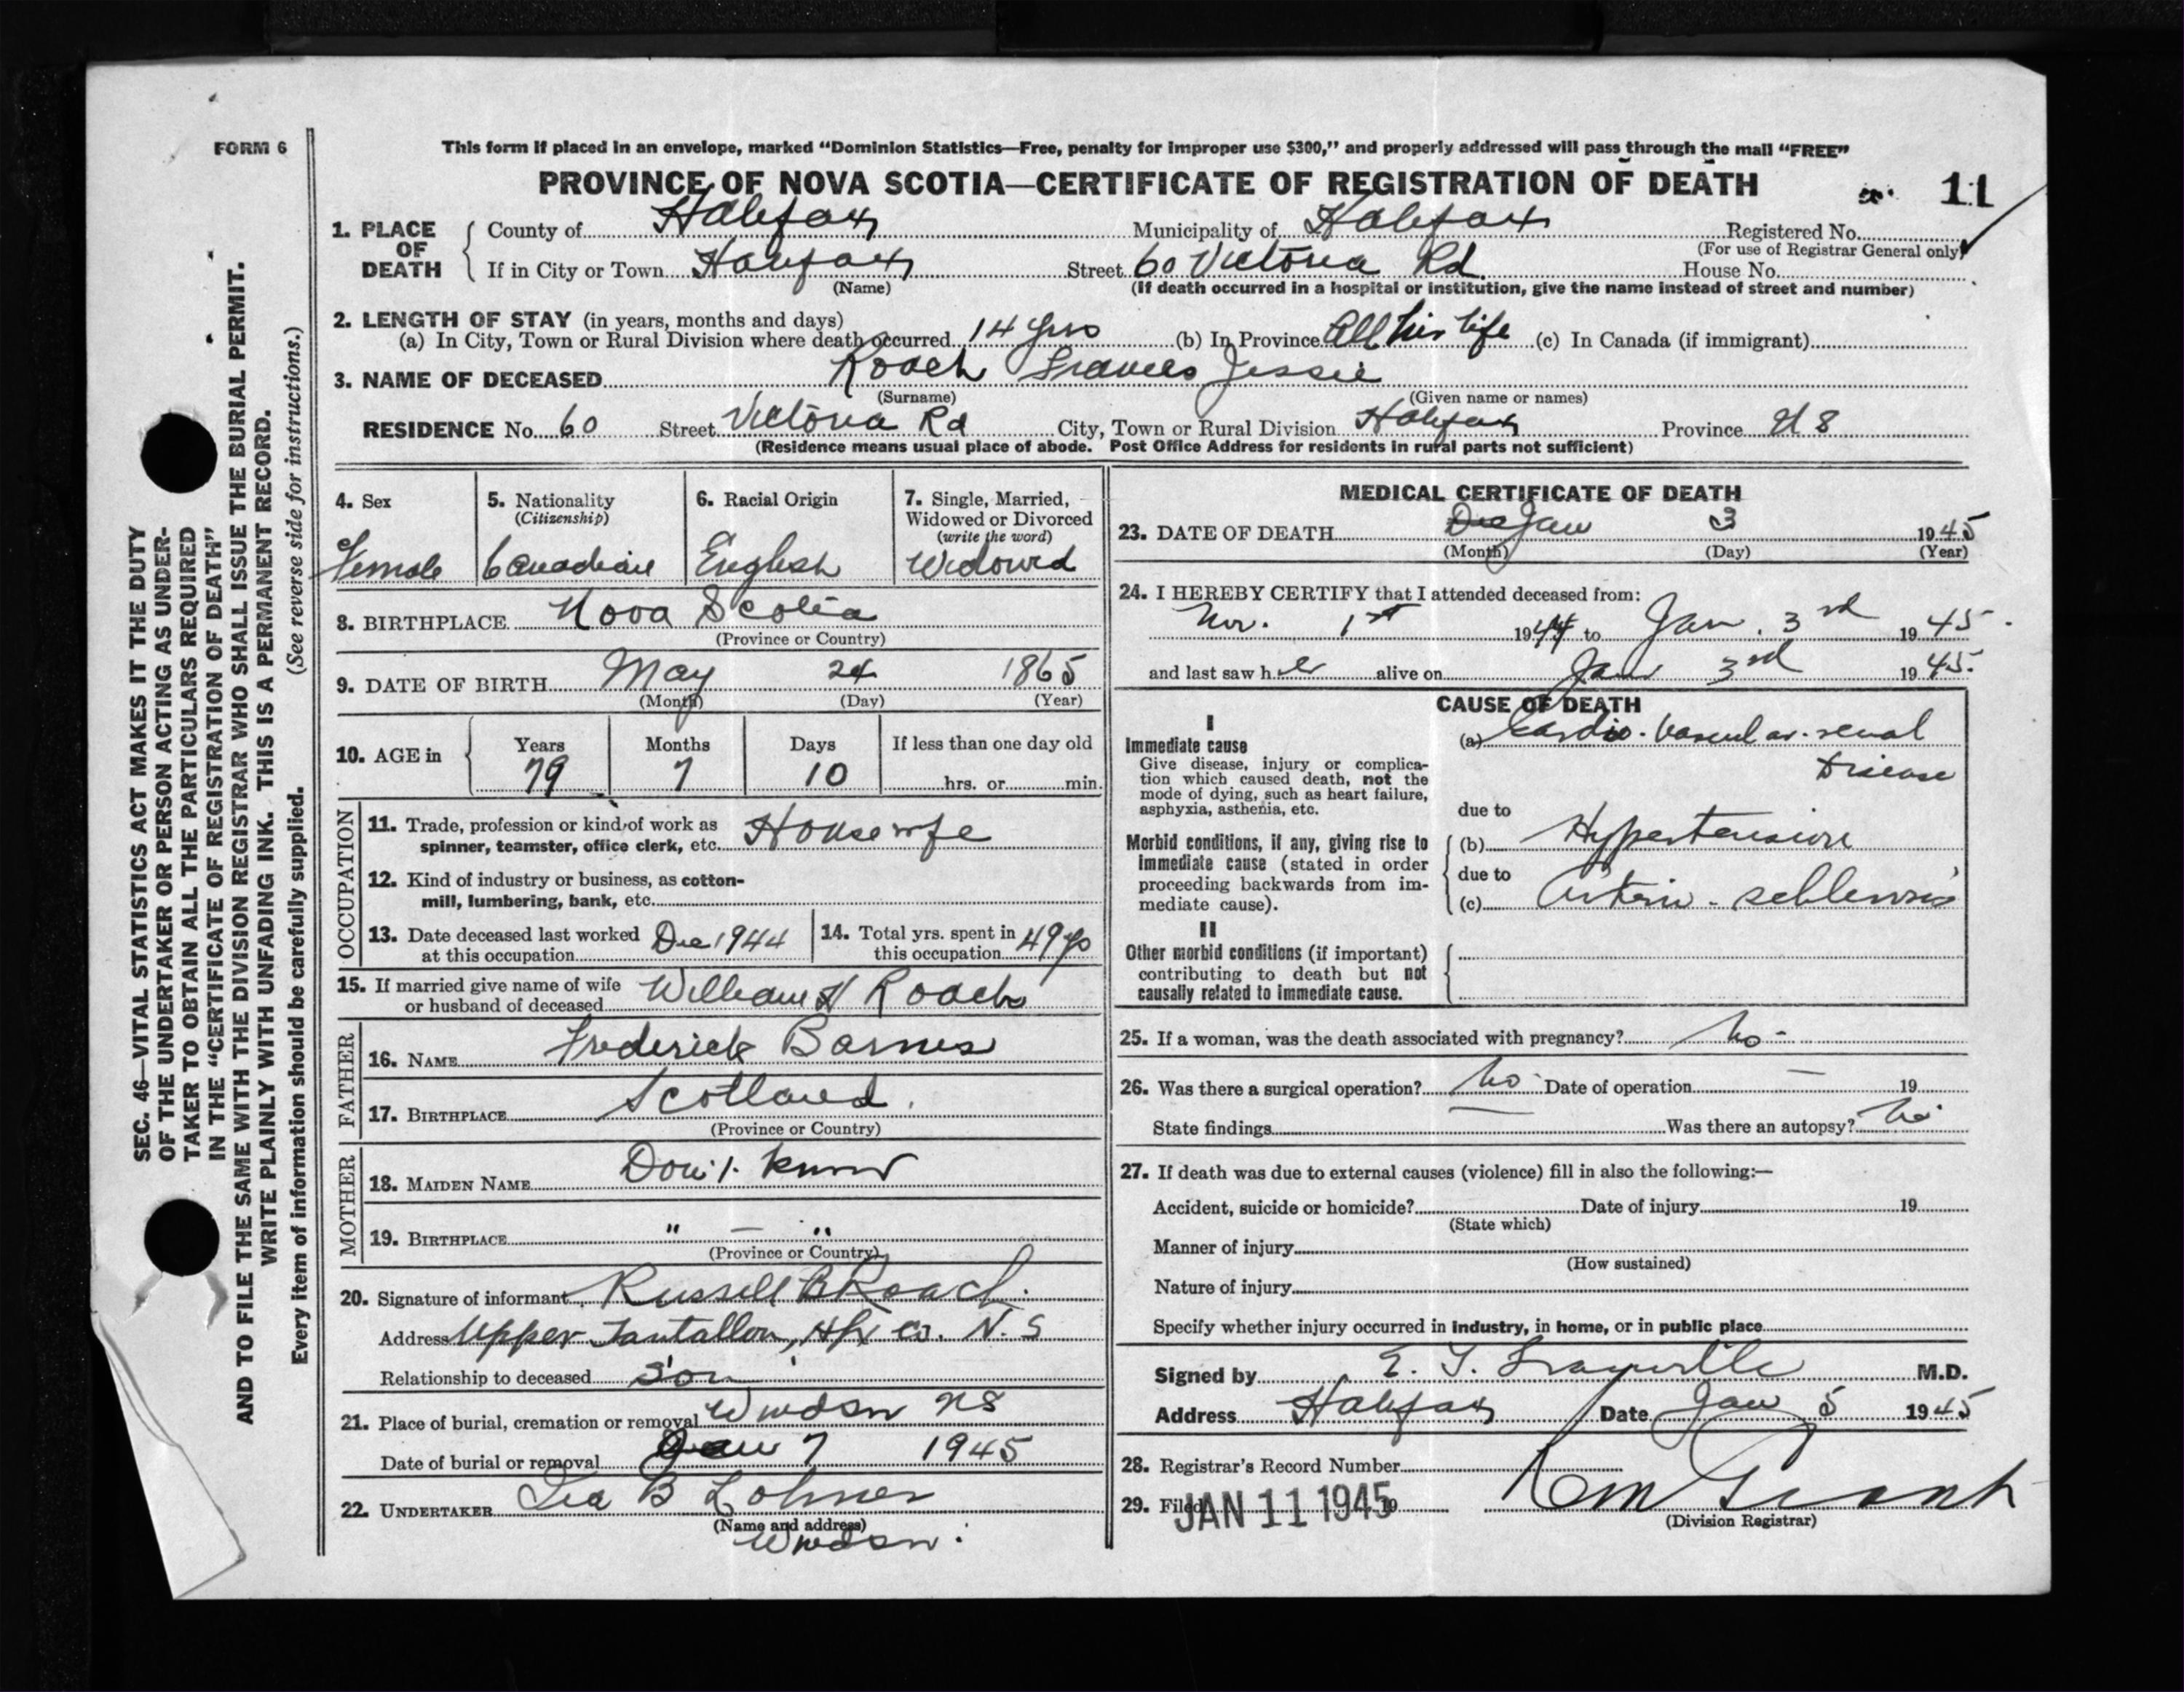 FORM 6
This form if placed in an envelope, marked “Dominion Statistics—Free, penalty for improper use $300,” and properly addressed will pass through the mail “FREE”
PROVINCE OF NOVA SCOTIA—CERTIFICATE OF REGISTRATION OF DEATH
11
1. PLACE OF DEATH
County of Halifax Municipality of Halifax Registered No.
(For use of Registrar General only)
If in City or Town Halifax Street 60 Victoria Rd. House No.
(Name) (If death occurred in a hospital or institution, give the name instead of street and number)
2. LENGTH OF STAY (in years, months and days)
(a) In City, Town or Rural Division where death occurred 14 yrs (b) In Province All her life (c) In Canada (if immigrant)
3. NAME OF DECEASED Roach Frances Jessie
(Surname) (Given name or names)
RESIDENCE No. 60 Street Victoria Rd City, Town or Rural Division Halifax Province N S
(Residence means usual place of abode. Post Office Address for residents in rural parts not sufficient)
4. Sex
Female
5. Nationality
(Citizenship)
Canadian
6. Racial Origin
English
7. Single, Married,
Widowed or Divorced
(write the word)
Widowed
8. BIRTHPLACE Nova Scotia
(Province or Country)
9. DATE OF BIRTH May 24 1865
(Month) (Day) (Year)
10. AGE in
Years Months Days If less than one day old
79 7 10 hrs. or min.
OCCUPATION
11. Trade, profession or kind of work as
spinner, teamster, office clerk, etc. Housewife
12. Kind of industry or business, as cotton-
mill, lumbering, bank, etc.
13. Date deceased last worked
at this occupation Dec 1944
14. Total yrs. spent in
this occupation 49 yrs
15. If married give name of wife
or husband of deceased William H Roach
FATHER
16. NAME Frederick Barnes
17. BIRTHPLACE Scotland.
(Province or Country)
MOTHER
18. MAIDEN NAME Don't know
19. BIRTHPLACE " — "
(Province or Country)
20. Signature of informant Russell B Roach.
Address Upper Tantallon, Hfx Co. N.S
Relationship to deceased Son
21. Place of burial, cremation or removal Windsor NS
Date of burial or removal Jan 7 1945
22. UNDERTAKER Ira B Lohnes
(Name and address)
Windsor.
MEDICAL CERTIFICATE OF DEATH
23. DATE OF DEATH Dec Jan 3 1945
(Month) (Day) (Year)
24. I HEREBY CERTIFY that I attended deceased from:
Nov. 1st 1944 to Jan. 3rd 1945.
and last saw her alive on Jan 3rd 1945.
CAUSE OF DEATH
I
Immediate cause
Give disease, injury or complica-
tion which caused death, not the
mode of dying, such as heart failure,
asphyxia, asthenia, etc.
(a) Cardio-vascular-renal
Disease
due to
Morbid conditions, if any, giving rise to
immediate cause (stated in order
proceeding backwards from im-
mediate cause).
(b) Hypertension
due to
(c) Arterio-schlerosis
II
Other morbid conditions (if important)
contributing to death but not
causally related to immediate cause.
25. If a woman, was the death associated with pregnancy? No -
26. Was there a surgical operation? No. Date of operation — 19
State findings — Was there an autopsy? No.
27. If death was due to external causes (violence) fill in also the following:—
Accident, suicide or homicide? Date of injury 19
(State which)
Manner of injury
(How sustained)
Nature of injury
Specify whether injury occurred in industry, in home, or in public place
Signed by E. T. Granville M.D.
Address Halifax Date Jan 5 1945
28. Registrar's Record Number
29. Filed JAN 11 1945 19
(Division Registrar)
SEC. 46—VITAL STATISTICS ACT MAKES IT THE DUTY
OF THE UNDERTAKER OR PERSON ACTING AS UNDER-
TAKER TO OBTAIN ALL THE PARTICULARS REQUIRED
IN THE “CERTIFICATE OF REGISTRATION OF DEATH”
AND TO FILE THE SAME WITH THE DIVISION REGISTRAR WHO SHALL ISSUE THE BURIAL PERMIT.
WRITE PLAINLY WITH UNFADING INK. THIS IS A PERMANENT RECORD.
Every item of information should be carefully supplied. (See reverse side for instructions.)